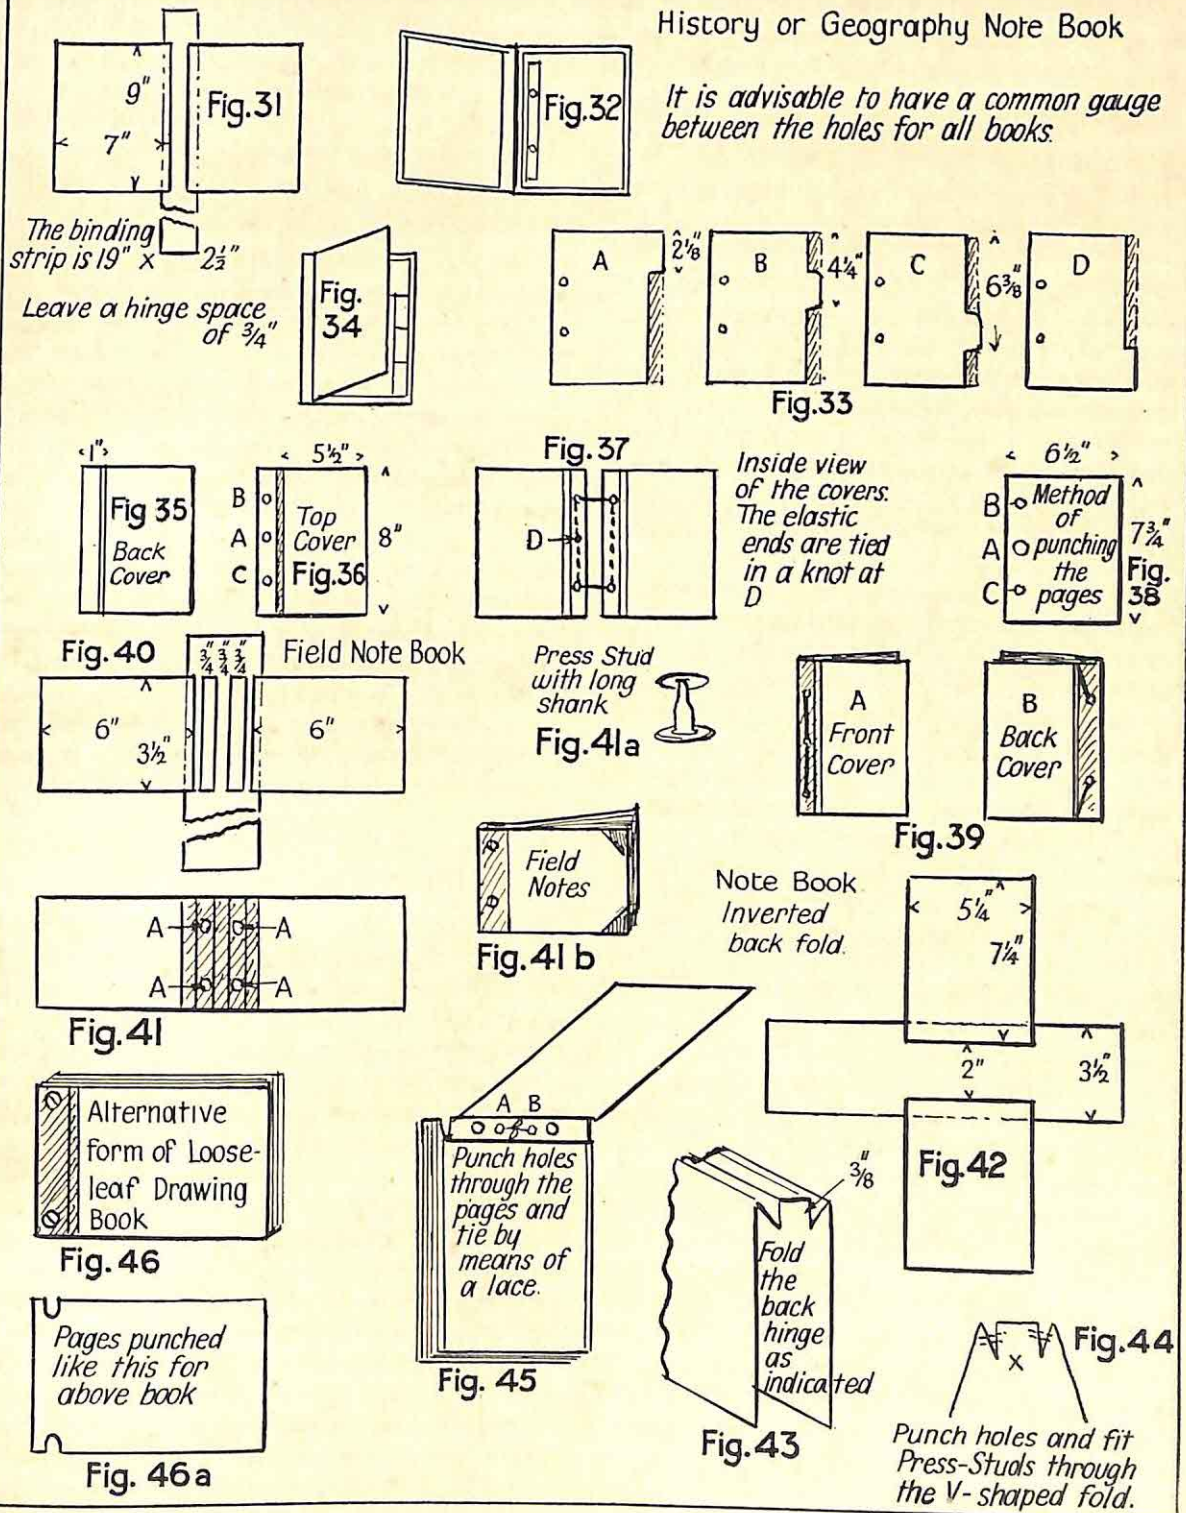 History or Geography Note Book
It is advisable to have a common gauge
between the holes for all books.
9"
7"
Fig.31
The binding
strip is 19" x 2½"
Leave a hinge space
of ¾"
Fig.32
Fig.
34
A
2⅛"
B
4¼"
C
6⅜"
D
Fig.33
1"
Fig 35
Back
Cover
5½"
B
A
C
Top
Cover
8"
Fig.36
Fig.37
D
Inside view
of the covers.
The elastic
ends are tied
in a knot at
D
6½"
B
A
C
Method
of
punching
the
pages
7¾"
Fig.
38
Fig.40
¾" ¾" ¾"
Field Note Book
6"
3½"
6"
Press Stud
with long
shank
Fig.41a
A
Front
Cover
B
Back
Cover
Fig.39
A A
A A
Fig.41
Field
Notes
Fig.41b
Note Book
Inverted
back fold.
5¼"
7¼"
2"
3½"
Fig.42
Alternative
form of Loose-
leaf Drawing
Book
Fig.46
Pages punched
like this for
above book
Fig. 46a
A B
Punch holes
through the
pages and
tie by
means of
a lace.
Fig. 45
⅜"
Fold
the
back
hinge
as
indicated
Fig.43
X
Fig.44
Punch holes and fit
Press-Studs through
the V-shaped fold.